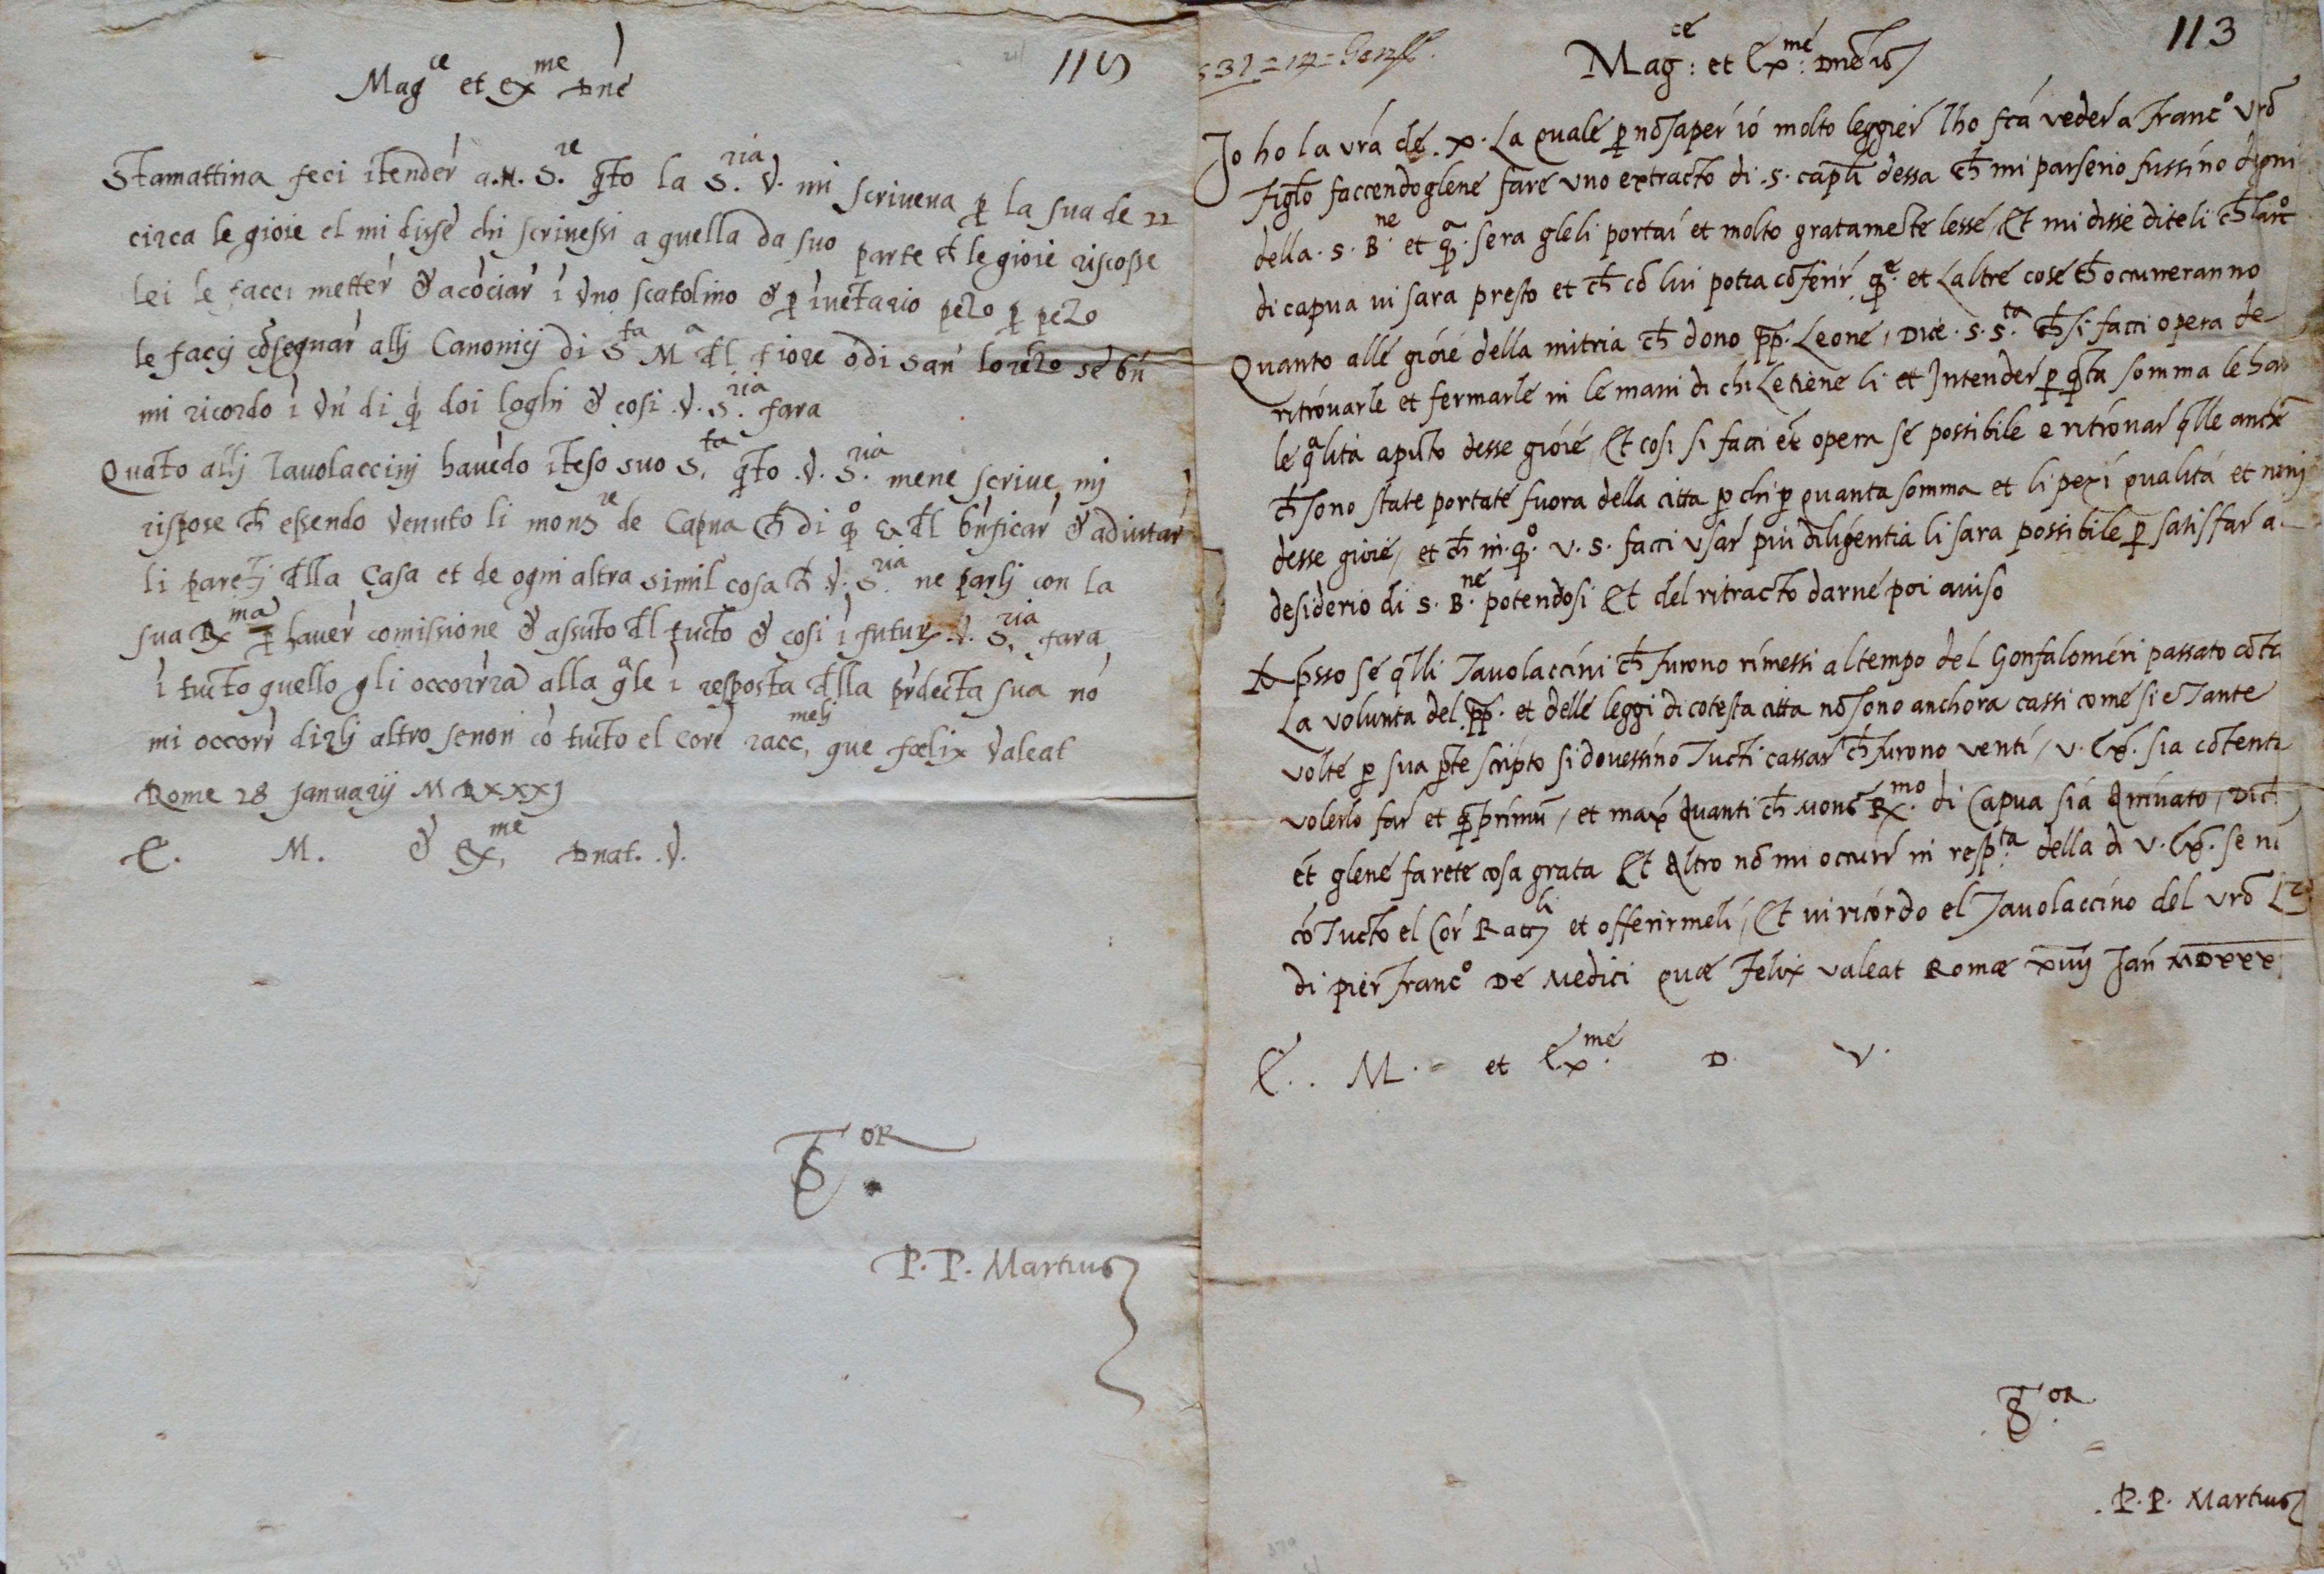 115
Mag.ce et ex.me Dne
Stamattina feci itender a.N.S.re q̄to la S.ria V. mi scriueua p̱ la sua de 22
circa le gioie el mi disse chi scriuessi a quella da suo parte ch̄ le gioie riscosse
lei le facci metter & acociar ī vno scatolino & p̱ iuētario pezo p̱ pezo
le facci cōsegnar allj Canonicj di S.ta M.a đl fiore o di san lorēzo se bn̄
mi ricordo ī vn di q̄ doi loghi & cosi .V.S.ria fara
Quāto allj Tauolaccinj hauēdo īteso suo S.ta q̄to .V.S.ria mene scriue mj
rispose ch̄ essendo venuto li mons.re de Capua ch̄ di q̄o & đl bn̄ficar & adiutar
li parētj đlla Casa et de ogni altra simil cosa ch̄ V.S.ria ne parlj con la
sua R.ma p̱ hauer comissione & assuto đl tucto & cosi ī futur .V.S.ria fara
ī tucto quello gli occorrra alla q̄le ī resposta đlla prdecta sua nō
mi occorr dirlj altro senon cō tucto el core racc.melj que fœlix Valeat
Rome 28 Januarij MDXXXJ
E. M. & Ex.me Dnat. .V.
S.OR
P.P. Martius
113
531=14=Genn
Mag.ce et Ex.me Dnō
Jo ho la vrā de .x. La quale p̱ nō saper iō molto legger lho fcā veder a Franc.o vrō
figlo faccendoglene fare vno extracto di .5. capli dessa ch̄ mi parseno fussino degni
della .S.B.ne et q̄a. sera gleli portai et molto gratamēte lesse / Et mi disse diteli ch̄ larc.o
di capua vi sara presto et ch̄ cō lui potra cōferir q̄e. et laltre cose ch̄ occurreranno
Quanto alle gioie della mitria ch̄ dono pp̄. Leone, Dice .S.S.ta ch̄ si facci opera de
ritrouarle et fermarle in le mani di chi le tiene li et Intender p̱ q̄ta somma le han
le q̄alita apūto desse gioie / Et cosi si facci et opera se possibile e ritrouar q̄lle anche
ch̄ sono state portate fuora della citta p̱ chi p̱ quanta somma et li pexi qualita et nomj
desse gioie / et ch̄ in .q̄o. V.S. facci vsar piu diligentia li sara possibile p̱ satisfar al
desiderio di S.B.ne potendosi Et del ritracto darne poi auiso
Ap̄sso se q̄lli Tauolaccini ch̄ furono rimessi al tempo del Gonfalonieri passato cōta
La volunta del .pp̄. et delle leggi di cotesta citta nō sono anchora cassi come si e Tante
volte p̱ sua p̄te scripto si douessino Tucti cassar ch̄ furono venti / V. Ex. sia cōtenta
volerlo far et q̄prīmū / et max Auanti ch̄ Mons R.mo di Capua sia Arriuato,
et glene farete cosa grata Et Altro nō mi occurr in resp.ta della di V. Ex. se nō
cō Tucto el Cor Racc.li et offerirmeli / Et vi ricordo el Tauolaccino del vrō
di pier Franc.o De Medici quæ Felix valeat Romæ xiiij Jan MDXXX
E. M. et Ex.me D. V.
S.OR
P.P. Martius